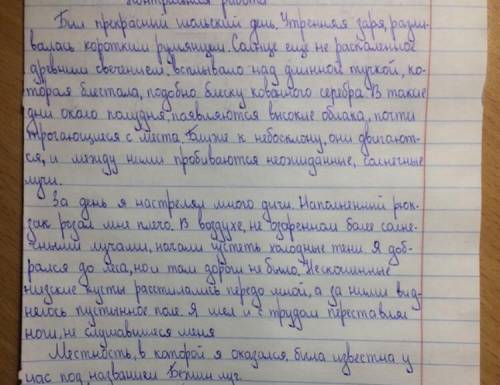 Контрольная работа
Был прекрасный июльский день. Утренняя заря, разли-
валась коротким румянцем. Солнце еще не раскаленное
древним свечением, всплывало над длинной тучкой, ко-
торая блестала, подобно блеску кованного серебра. В такие
дни около полудня, появляются высокие облака, почти
трогающиеся с места. Ближе к небосклону, они двигают-
ся, и между ними пробиваются неожиданные, солнечные
лучи.
За день я настрелял много дичи. Наполненний рюк-
зак резал мне плечо. В воздухе, не озаренном боле солне-
чными лучами, начали густеть холодные тени. Я доб-
рался до леса, но и там дороги не было. Нескошенные
низкие кусты расстилались передо мной, а за ними вид-
нелось пустынное поле. Я шел и с трудом переставлял
ноги, не слушавшиеся меня
Местность, в которой я оказался, была известна у
нас под названием Бежин луг.